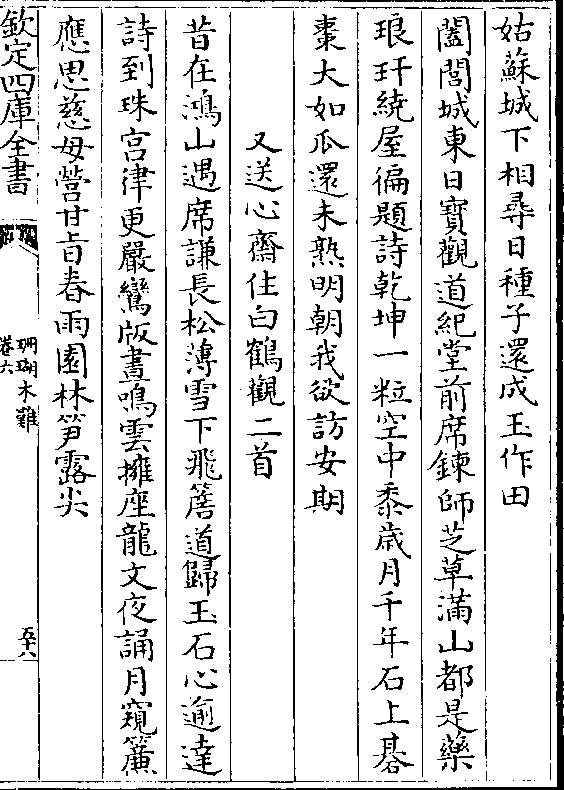 姑蘇城下相尋日種子還成玉作田
闔閭城東日寶觀道紀堂前席鍊師芝草滿山都是藥
琅玕繞屋徧題詩乾坤一粒空中黍歳月千年石上碁
棗大如瓜還未熟明朝我欲訪安期
又送心齋住白鶴觀二首
昔在鴻山遇席謙長松薄雪下飛簷道歸玉石心逾達
詩到珠宫律更嚴鸞版晝鳴雲擁座龍文夜誦月窺簾
應思慈母營甘旨春雨園林笋露尖
欽定四庫全書
珊瑚木難
卷六
五十八